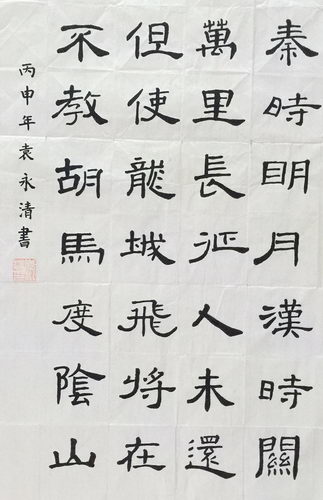 秦時明月漢時關
萬里長征人未還
但使龍城飛將在
不教胡馬度陰山
丙申年袁永清書